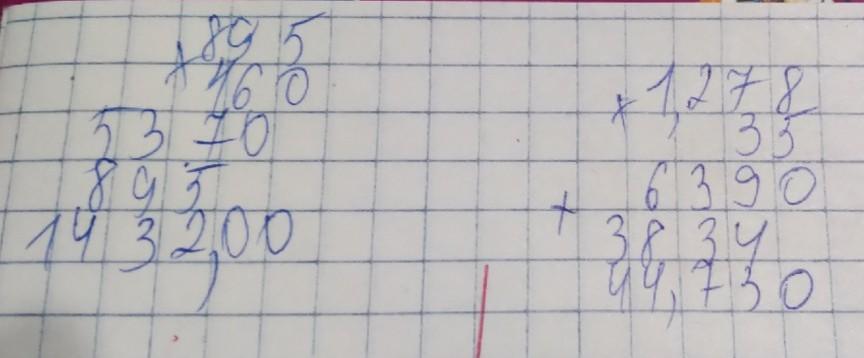 895
× 160
53 70
895
1432,00
× 1,278
35
6390
+ 3834
44,730